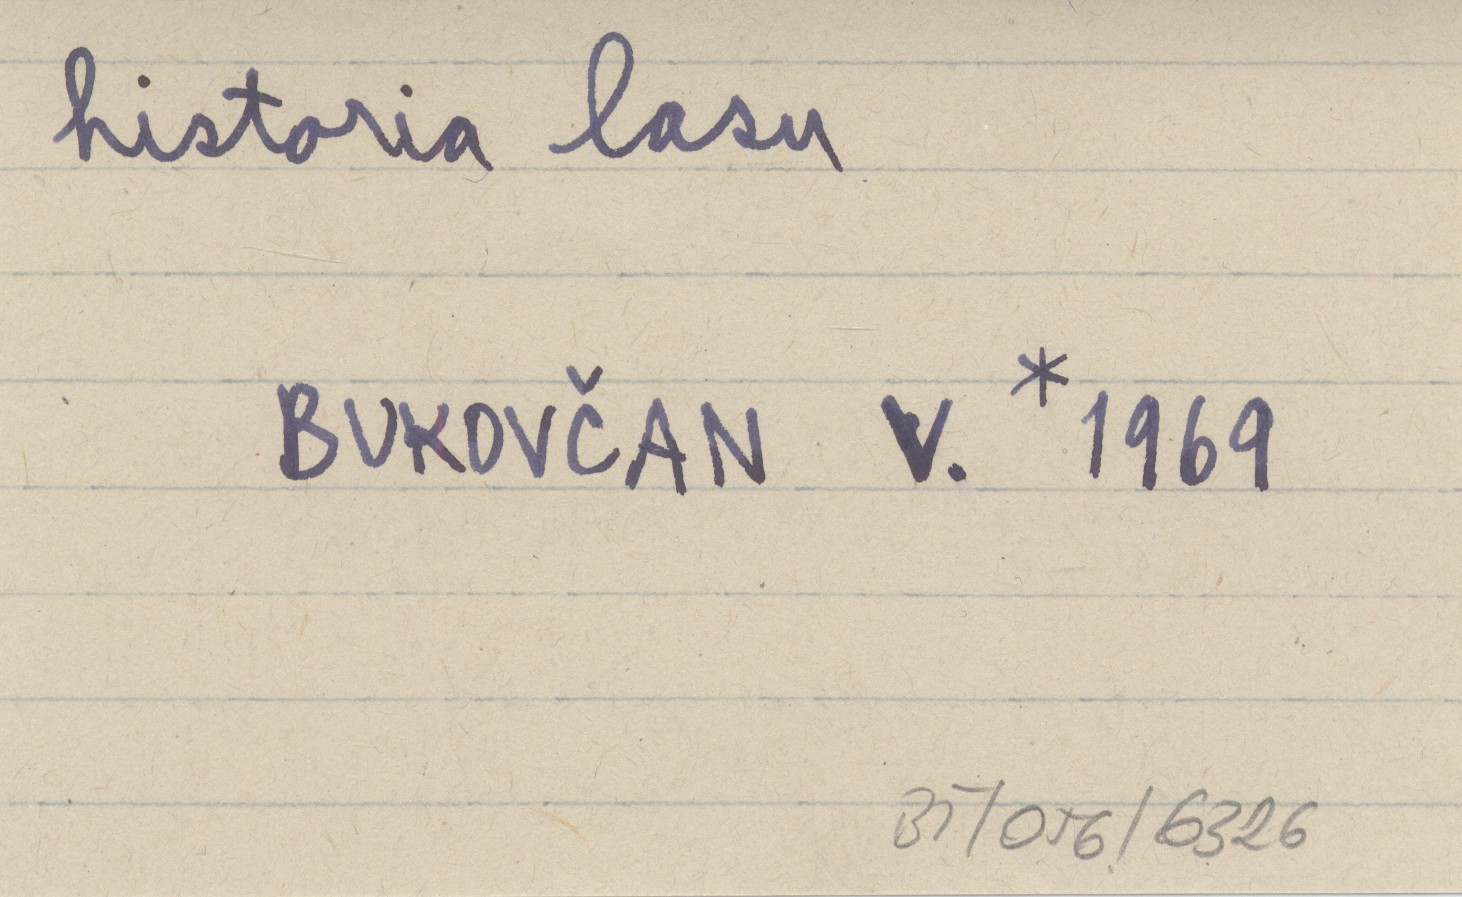 historia lasu
BUKOVČAN V. *1969
35/056/6326